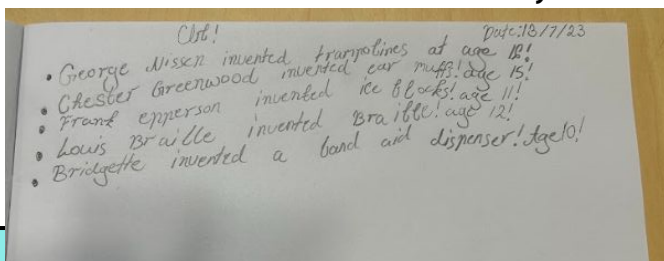 Clst! Date:13/7/23
• George Nissen invented trampolines at age 16!
• Chester Greenwood invented ear muffs! age 15!
• Frank epperson invented ice blocks! age 11!
• Louis Braille invented Braille! age 12!
• Bridgette invented a band aid dispenser! Age10!